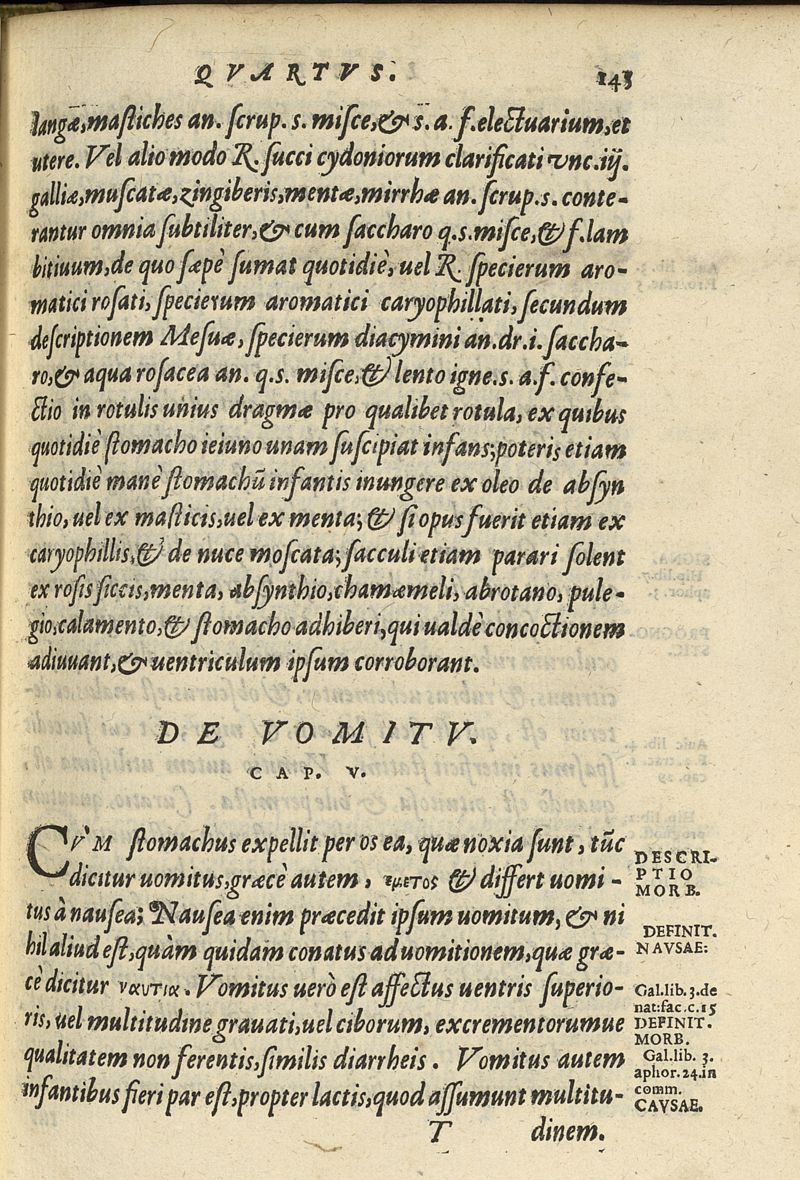 QVARTVS. 143
langæ, mastiches an. scrup. s. misce, & s. a. f. electuarium, et
utere. Vel alio modo R. succi cydoniorum clarificati vnc. iij.
galliæ, muscatæ, zingiberis, mentæ, mirrhæ an. scrup. s. conte-
rantur omnia subtiliter, & cum saccharo q. s. misce, & f. lam
bitiuum, de quo sæpè sumat quotidiè, uel R. specierum aro-
matici rosati, specierum aromatici caryophillati, secundum
descriptionem Mesuæ, specierum diacymini an. dr. i. saccha-
ro, & aqua rosacea an. q. s. misce, & lento igne. s. a. f. confe-
ctio in rotulis unius dragmæ pro qualibet rotula, ex quibus
quotidiè stomacho ieiuno unam suscipiat infans; poteris etiam
quotidiè manè stomachũ infantis inungere ex oleo de absyn
thio, uel ex masticis, uel ex menta; & si opus fuerit etiam ex
caryophillis, & de nuce moscata; sacculi etiam parari solent
ex rosis siccis, menta, absynthio, chamæmeli, abrotano, pule-
gio, calamento, & stomacho adhiberi, qui ualdè concoctionem
adiuuant, & uentriculum ipsum corroborant.
DE VOMITV.
CAP. V.
CVM stomachus expellit per os ea, quæ noxia sunt, tũc
dicitur uomitus, græcè autem, ἔμετος & differt uomi-
tus à nausea; Nausea enim præcedit ipsum uomitum, & ni
hil aliud est, quàm quidam conatus ad uomitionem, quæ græ-
cè dicitur ναυτία. Vomitus uerò est affectus uentris superio-
ris, uel multitudine grauati, uel ciborum, excrementorumue
qualitatem non ferentis, similis diarrheis. Vomitus autem
infantibus fieri par est, propter lactis, quod assumunt multitu-
T dinem.
DESCRI-
PTIO
MORB.
DEFINIT.
NAVSAE:
Gal. lib. 3. de
nat: fac. c. 15
DEFINIT.
MORB.
Gal. lib. 3.
aphor. 24. in
comm.
CAVSAE.